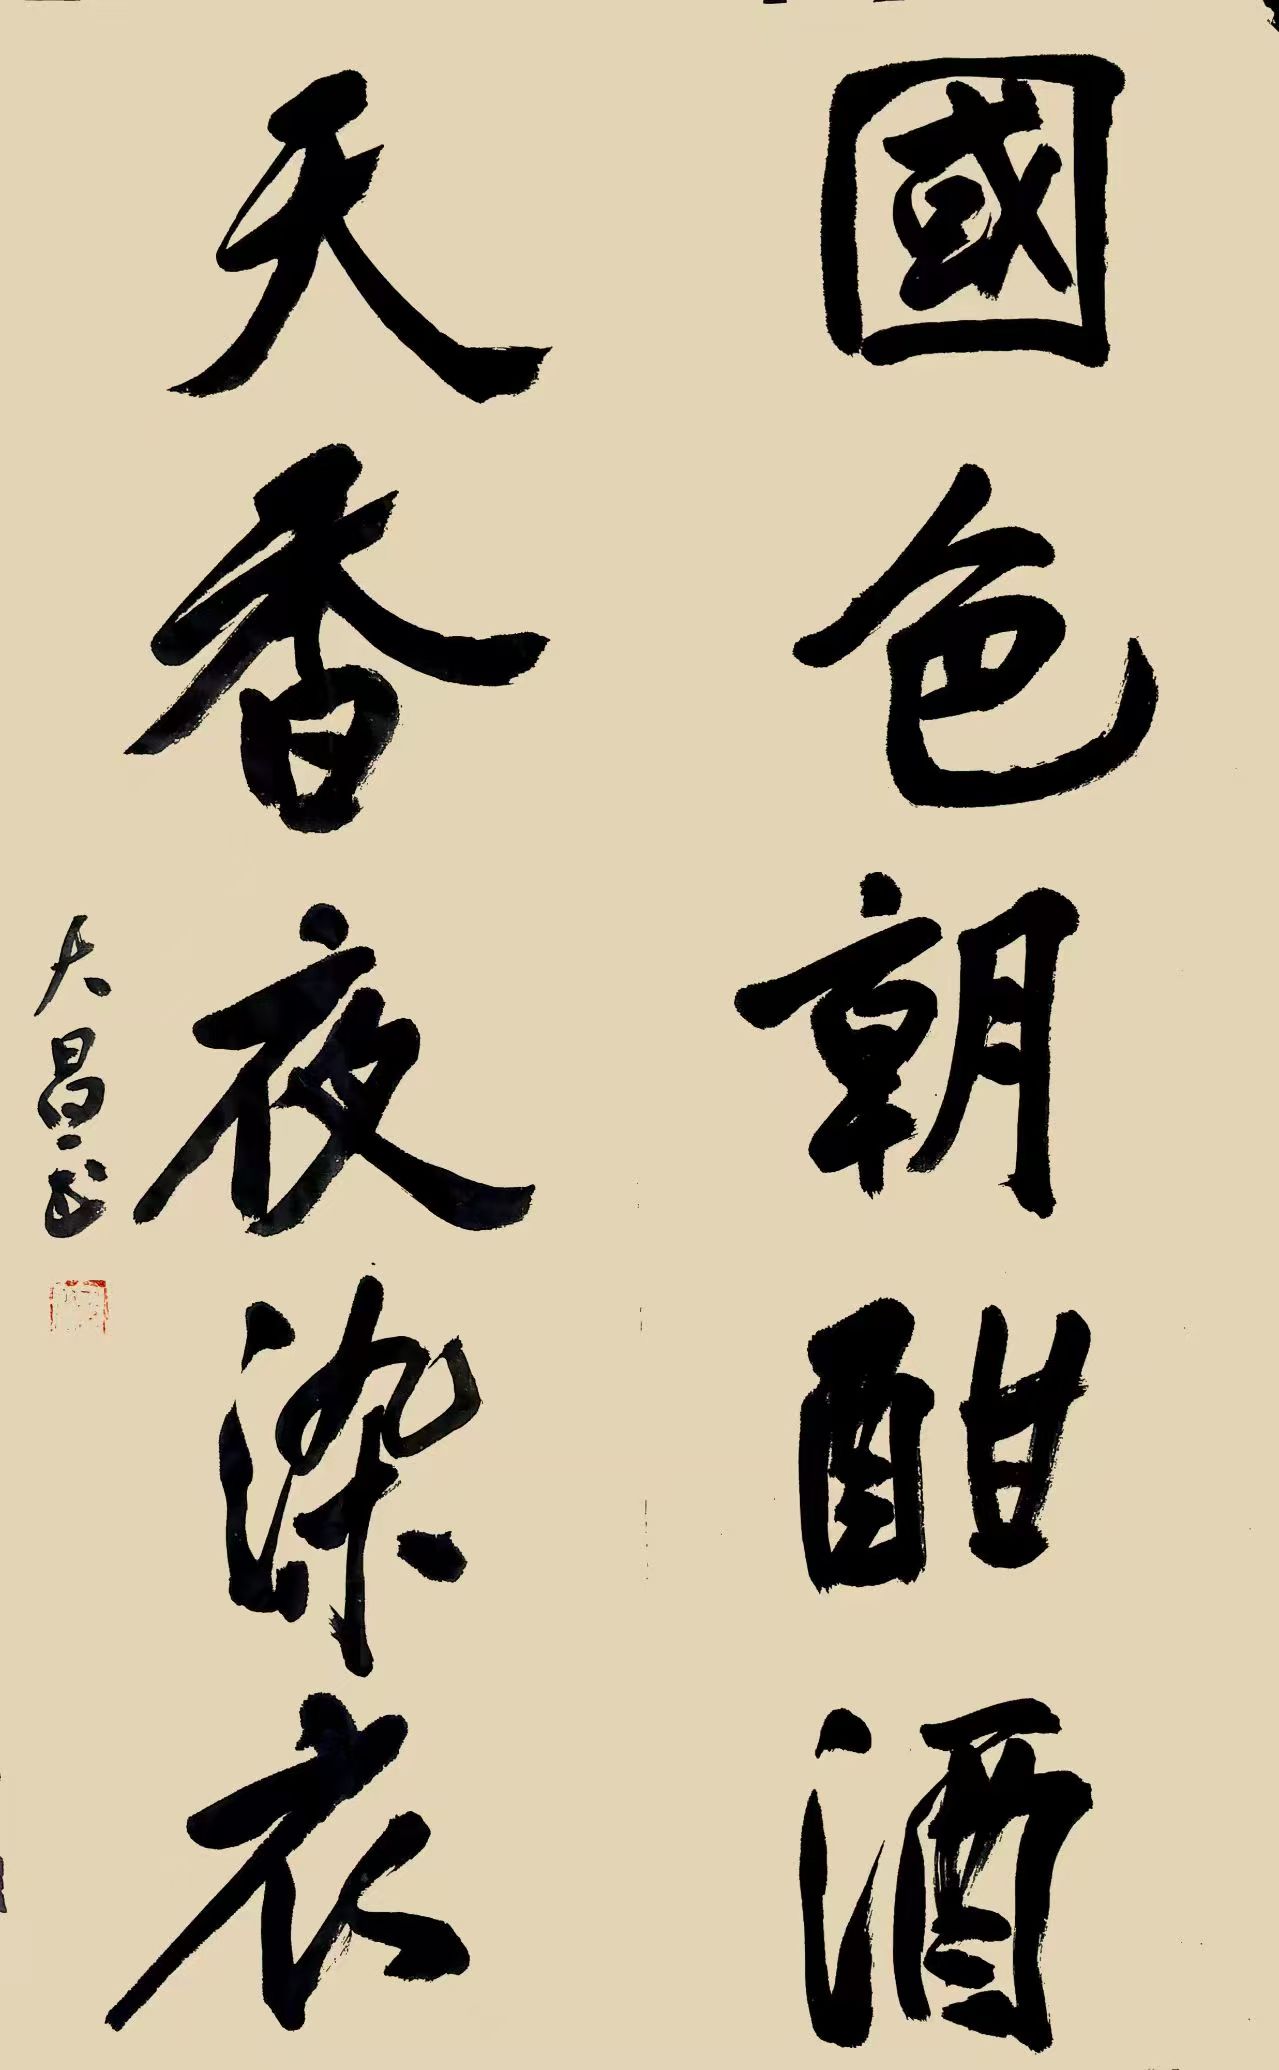 國色朝酣酒
天香夜染衣
大昌